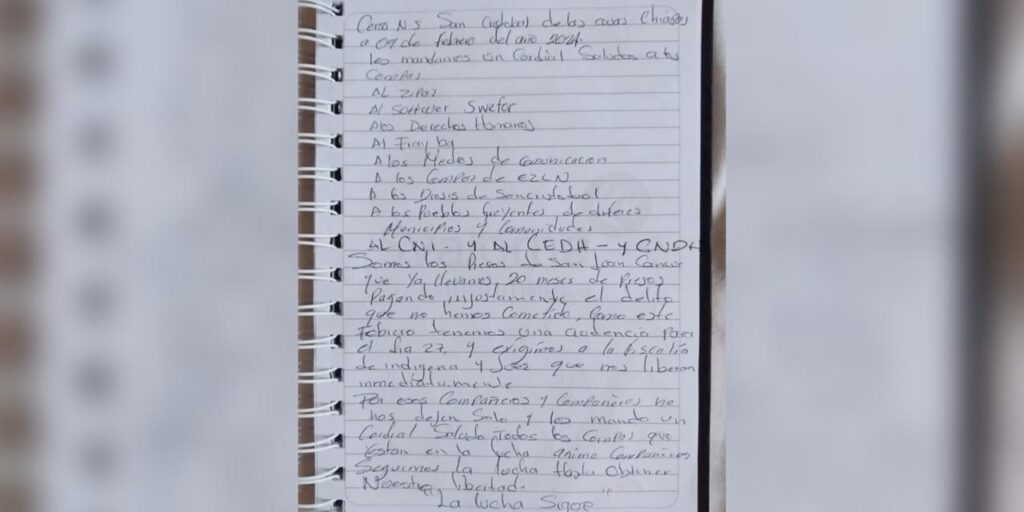 Cerss N.5 San Cristobal de las casas Chiapas
a 09 de febrero del año 2024
les mandamos un Cordial Saludos a tos
Compas
AL
Al Softwer Swefor
Alos Derechos Humanos
Al Frayba
A los Medios de Comunicacion
A los Compas de EZLN
A los de Sancristobal
A los Pueblos Creyentes de diferes
Municipios y Comunidades
AL CNI - y AL CEDH - y CNDH
Somos los Presos de San Juan Cancuc
que Ya llevamos 20 meses de Presos
Pagando injustamente el delito
que no hemos Cometido, Como este
Febrero tenemos una audencia para
el dia 27, y exigimos a la fiscalia
de indigena y Juez que nos liberan
inmediatamente
Por eses Compañeros y Compañeras no
nos dejen Solo y les mando un
Cordial Saludo Todos los Compas que
estan en la lucha animo Compañeros
Seguimos la lucha Hasta Obtener
Nuestra libertad.
"La lucha Sigue"